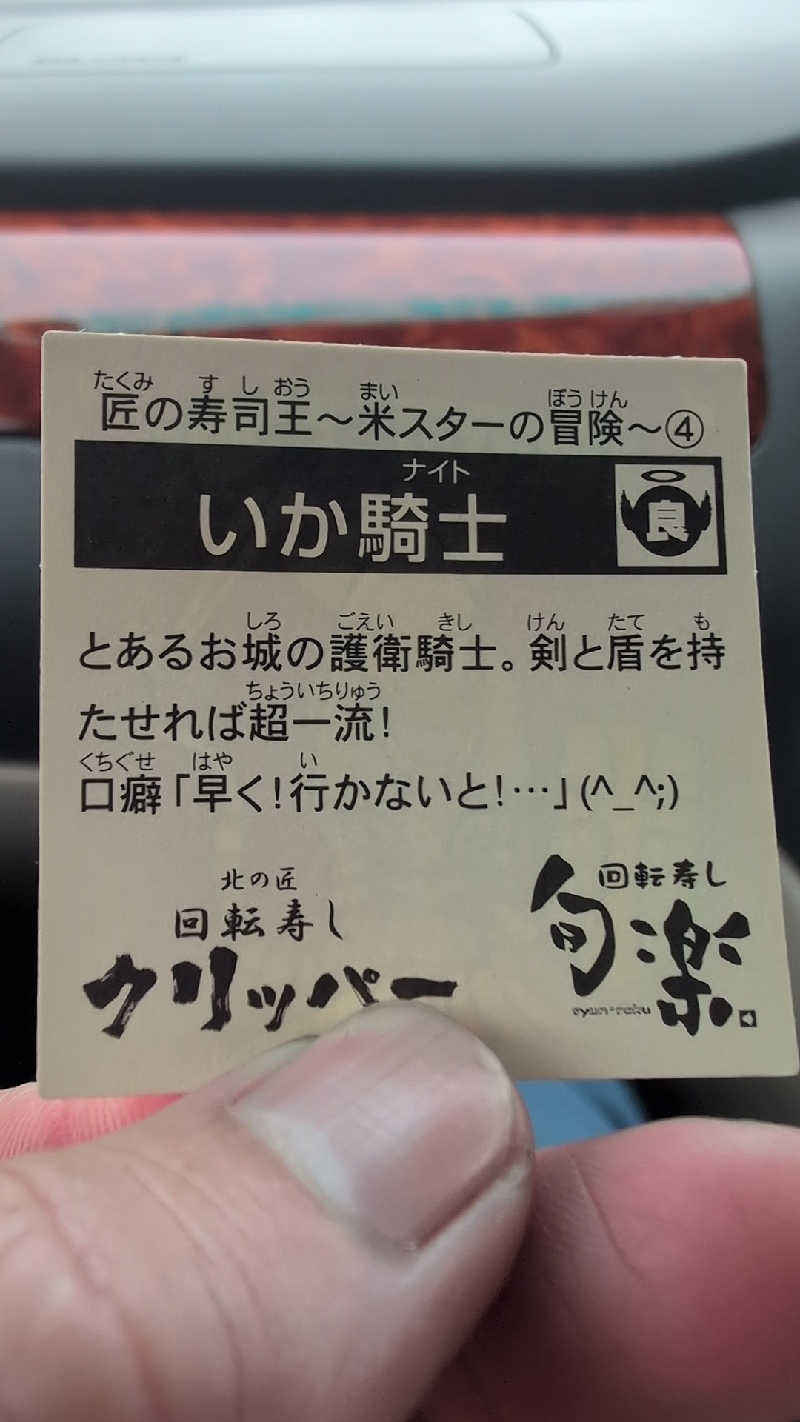 たくみ すしおう まい ぼうけん
匠の寿司王～米スターの冒険～④
ナイト
いか騎士
良
しろ ごえい きし けん たて も
とあるお城の護衛騎士。剣と盾を持
ちょういちりゅう
たせれば超一流!
くちぐせ はや い
口癖「早く!行かないと!…」(^_^;)
北の匠
回転寿し
クリッパー
回転寿し
旬楽
syun・raku